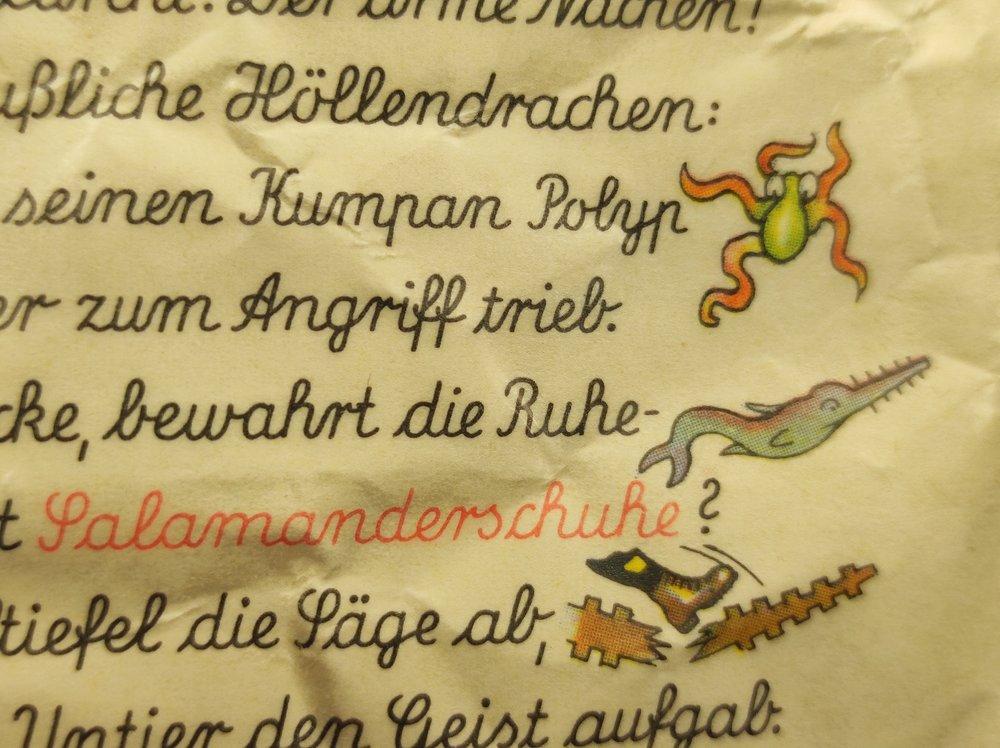 Der arme Nachen!
ußliche Höllendrachen:
seinen Kumpan Polyp
er zum Angriff trieb.
cke, bewahrt die Ruhe-
t Salamanderschuhe?
tiefel die Säge ab,
Untier den Geist aufgab.